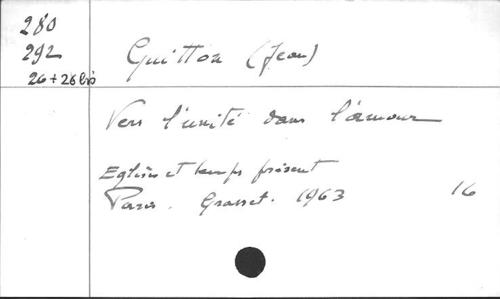 280
292
26 + 26 bis
Guitton (Jean)
Vers l'unité dans l'amour
Eglises et temps présent
Paris. Grasset. 1963 16